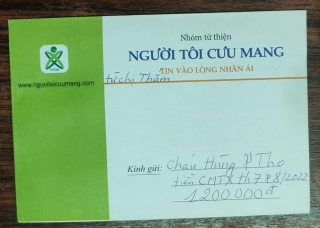 Nhóm từ thiện
NGƯỜI TÔI CƯU MANG
TIN VÀO LÒNG NHÂN ÁI
www.nguoitoicuumang.com
từ chị Thắm
Kính gửi: Cháu Hùng P Thọ
tiền CMTX th 7+8/2022
1200.000đ